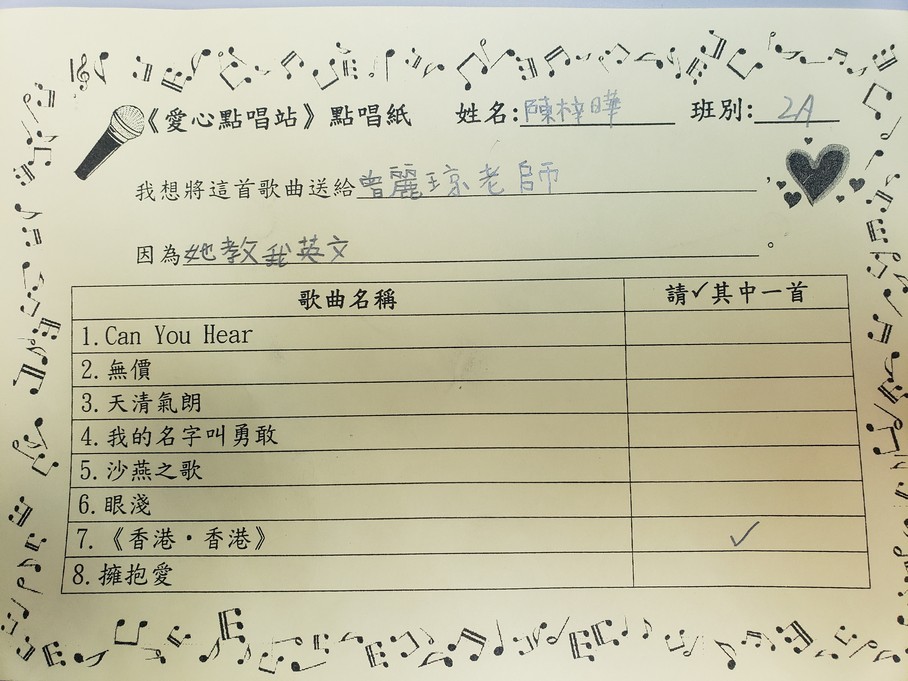 《愛心點唱站》點唱紙 姓名:陳梓曄 班別:2A
我想將這首歌曲送給曾麗琼老師，
因為她教我英文。
歌曲名稱 請✓其中一首
1.Can You Hear
2.無價
3.天清氣朗
4.我的名字叫勇敢
5.沙燕之歌
6.眼淺
7.《香港·香港》 ✓
8.擁抱愛